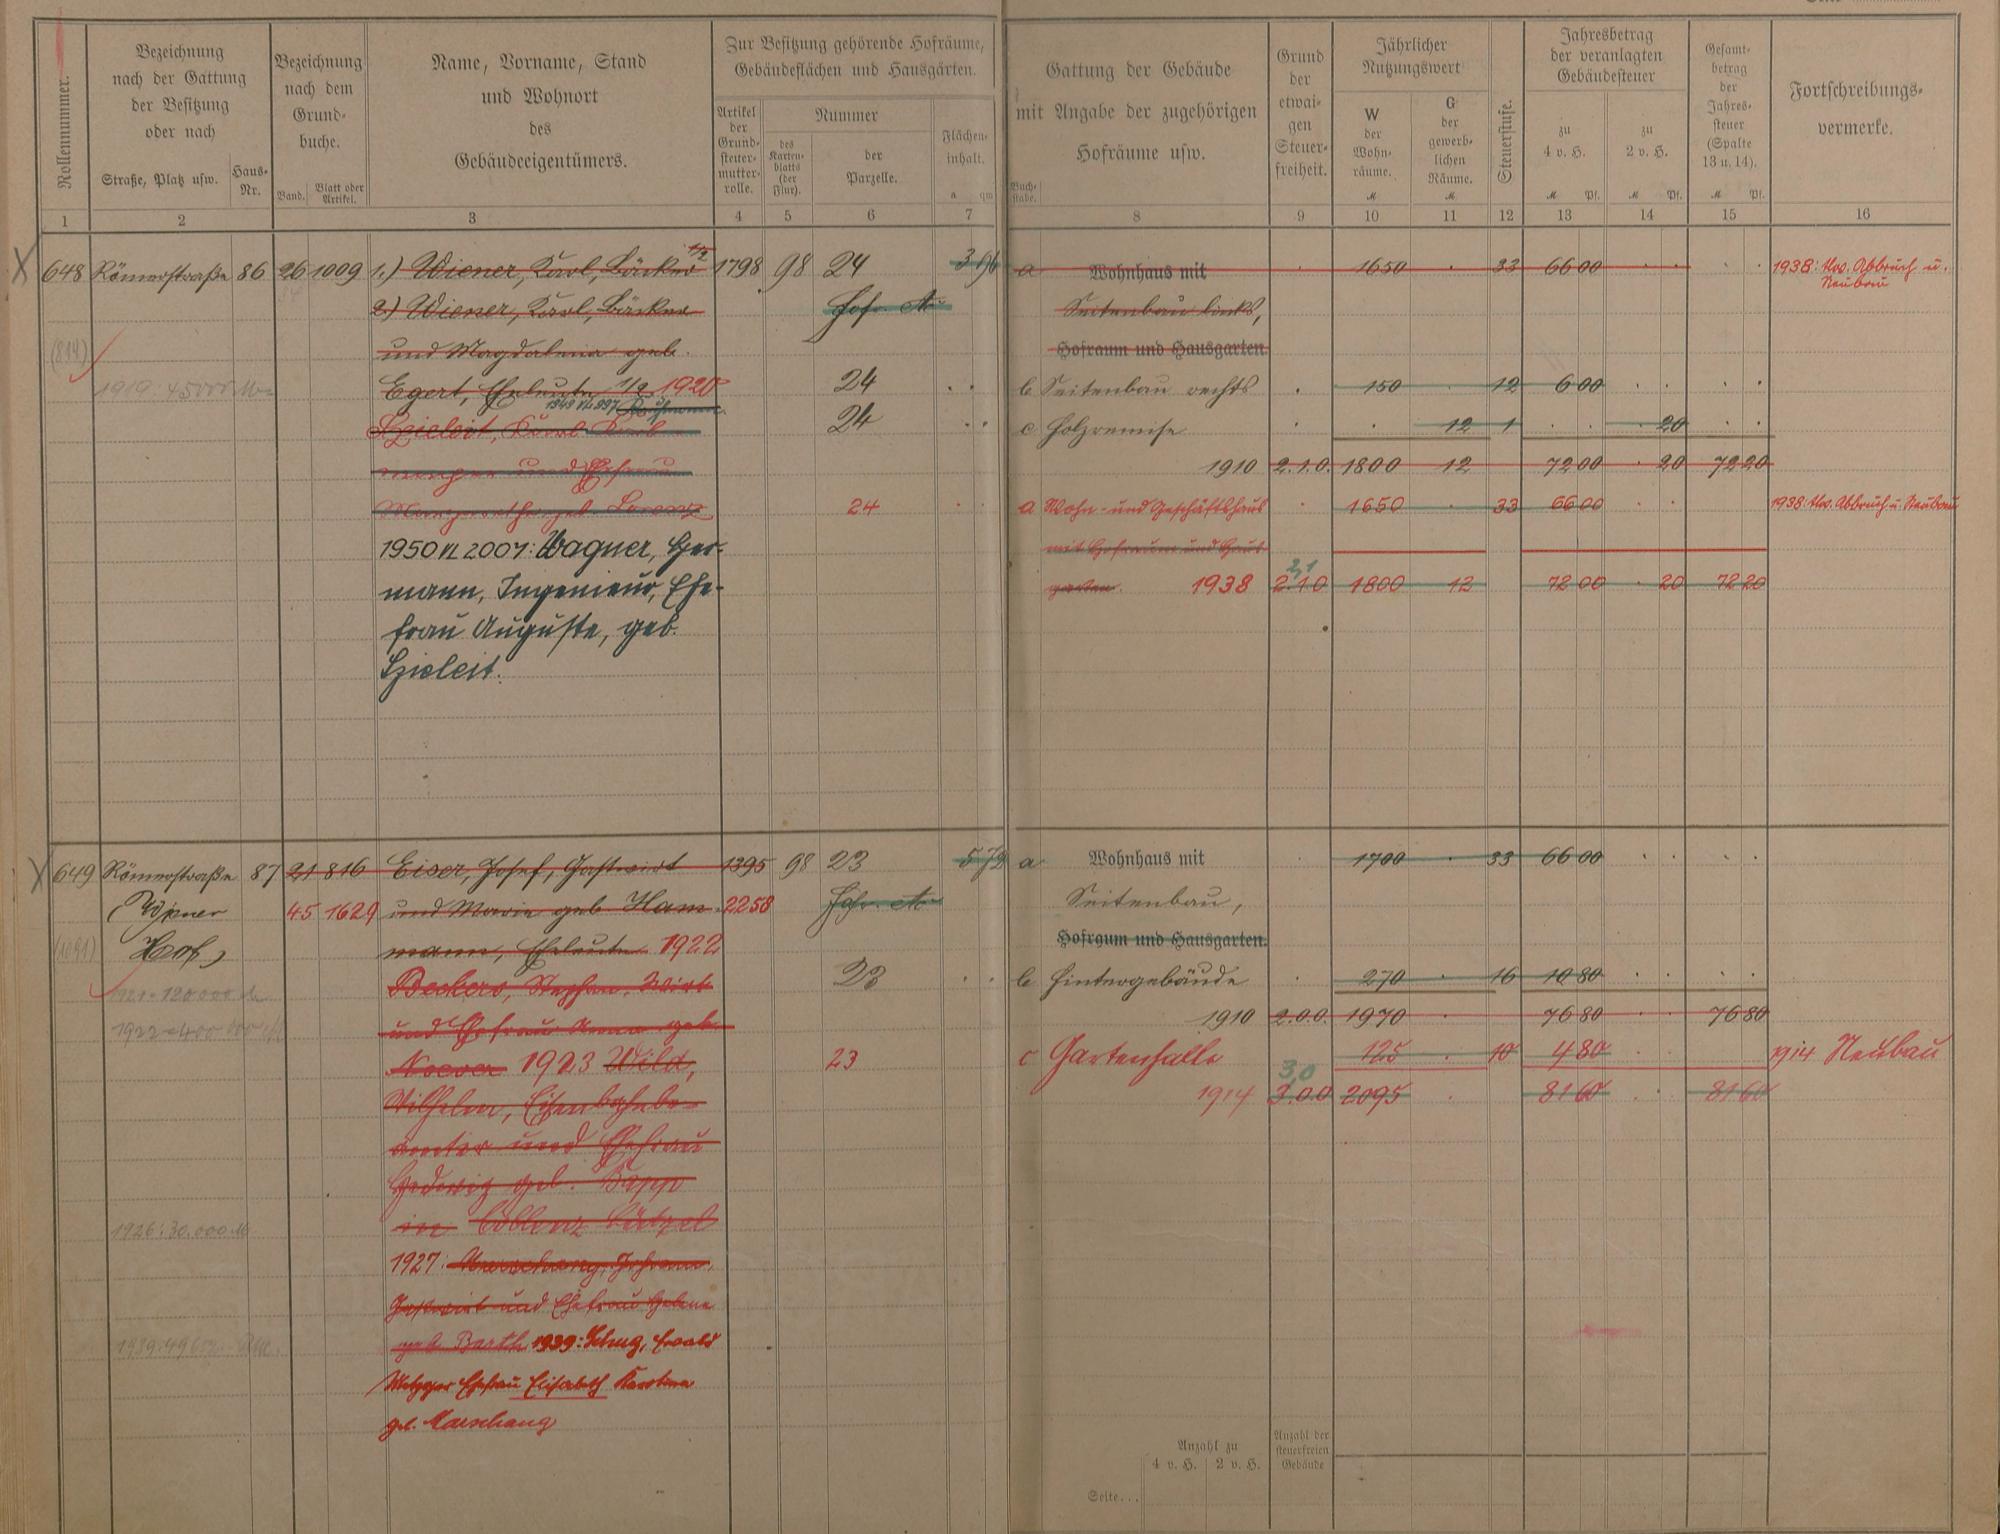 Rollennummer.
Bezeichnung
nach der Gattung
der Besitzung
oder nach
Straße, Platz usw.
Haus-
Nr.
Bezeichnung
nach dem
Grund-
buche.
Band.
Blatt oder
Artikel.
Name, Vorname, Stand
und Wohnort
des
Gebäudeeigentümers.
Zur Besitzung gehörende Hofräume,
Gebäudeflächen und Hausgärten.
Artikel
der
Grund-
steuer-
mutter-
rolle.
Nummer
des
Karten-
blatts
(der
Flur).
der
Parzelle.
Flächen-
inhalt.
a qm
Buch-
stabe.
Gattung der Gebäude
mit Angabe der zugehörigen
Hofräume usw.
Grund
der
etwai-
gen
Steuer-
freiheit.
Jährlicher
Nutzungswert
W
der
Wohn-
räume.
M
G
der
gewerb-
lichen
Räume.
M
Steuerstufe.
Jahresbetrag
der veranlagten
Gebäudesteuer
zu
4 v. H.
M Pf.
zu
2 v. H.
M Pf.
Gesamt-
betrag
der
Jahres-
steuer
(Spalte
13 u. 14).
M Pf.
Fortschreibungs-
vermerke.
1 2 3 4 5 6 7 8 9 10 11 12 13 14 15 16
648 Römerstraße 86 26 1009 1.) Wiener, Karl, Bäcker 1/2 1798 98 24 3 96 a Wohnhaus mit 1650 33 66 00 1938: Abbruch u.
Neubau
2) Wiener, Karl, Bäcker Hofr. Seitenbau links,
(814) und Magdalena geb. Hofraum und Hausgarten.
1919: 45000 Egert, Eheleute 1/2 1920 24 b Seitenbau rechts 150 12 6 00
1949 VL 997 Kaufmann
Szieleit, Karl 24 c Holzremise 12 1 20
und Ehefrau 1910 2.1.0. 1800 12 72 00 20 72 20
geb. Lorenz 24 a Wohn- und Geschäftshaus 1650 33 66 00 1938: Abbruch u. Neubau
1950 VL 2007: Wagner, Her- mit Hofraum und Haus-
2,1
mann, Ingenieur, Ehe- garten. 1938 2.1.0 1800 12 72 00 20 72 20
frau Auguste, geb.
Szieleit.
649 Römerstraße 87 21 816 Eiser, Josef, Gastwirt 1395 98 23 5 72 a Wohnhaus mit 1700 33 66 00
45 1629 und Maria geb. Ham- 2258 Hofr. Seitenbau,
(1091) Hof) mann, Eheleute 1922 Hofraum und Hausgarten.
1921 = 120000 Beckers, Stephan, Wirt 23 b Hintergebäude 270 16 10 80
1922 = 400 000 und Ehefrau Anna geb. 1910 2.0.0. 1970 76 80 76 80
Noever 1923 Wild, 23 c Gartenhalle 125 10 4 80 1914 Neubau
3,0
Wilhelm, Eisenbahnbe- 1914 3.0.0 2095 81 60 81 60
amter und Ehefrau
Hedwig geb. Bapp
1926: 30.000 M in Coblenz Lützel
1927: Johann,
Gastwirt und Ehefrau Helene
1939: geb. Barth 1939: Schug, Ewald
Metzger Ehefrau Elisabeth Karoline
geb. Marschang
Anzahl zu
4 v. H. 2 v. H.
Anzahl der
steuerfreien
Gebäude
Seite...